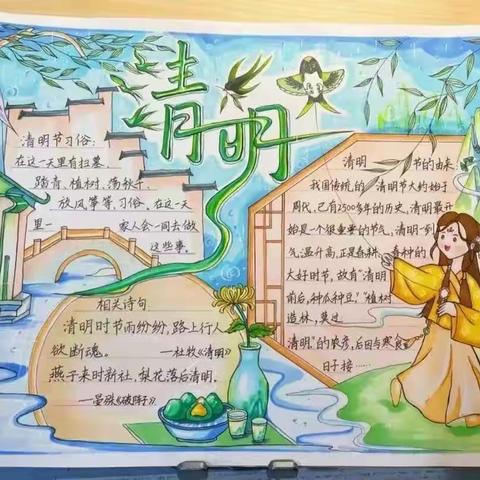 清明
清明节习俗:
在这一天里有扫墓、
踏青、植树、荡秋千、
放风筝等习俗。在这一天
里一 家人会一同去做
这些事。
相关诗句
清明时节雨纷纷,路上行人
欲断魂。 —杜牧《清明》
燕子来时新社,梨花落后清明。
—晏殊《破阵子》
清明 节的由来:
我国传统的 清明节大约始于
周代,已有2500多年的历史,清明最开
始是一个很重要的节气,清明一到
气温升高,正是春耕 春种的
大好时节,故有"清明
前后,种瓜种豆。"植树
造林,莫过
清明。"的农彦,后因与寒食
日子接……